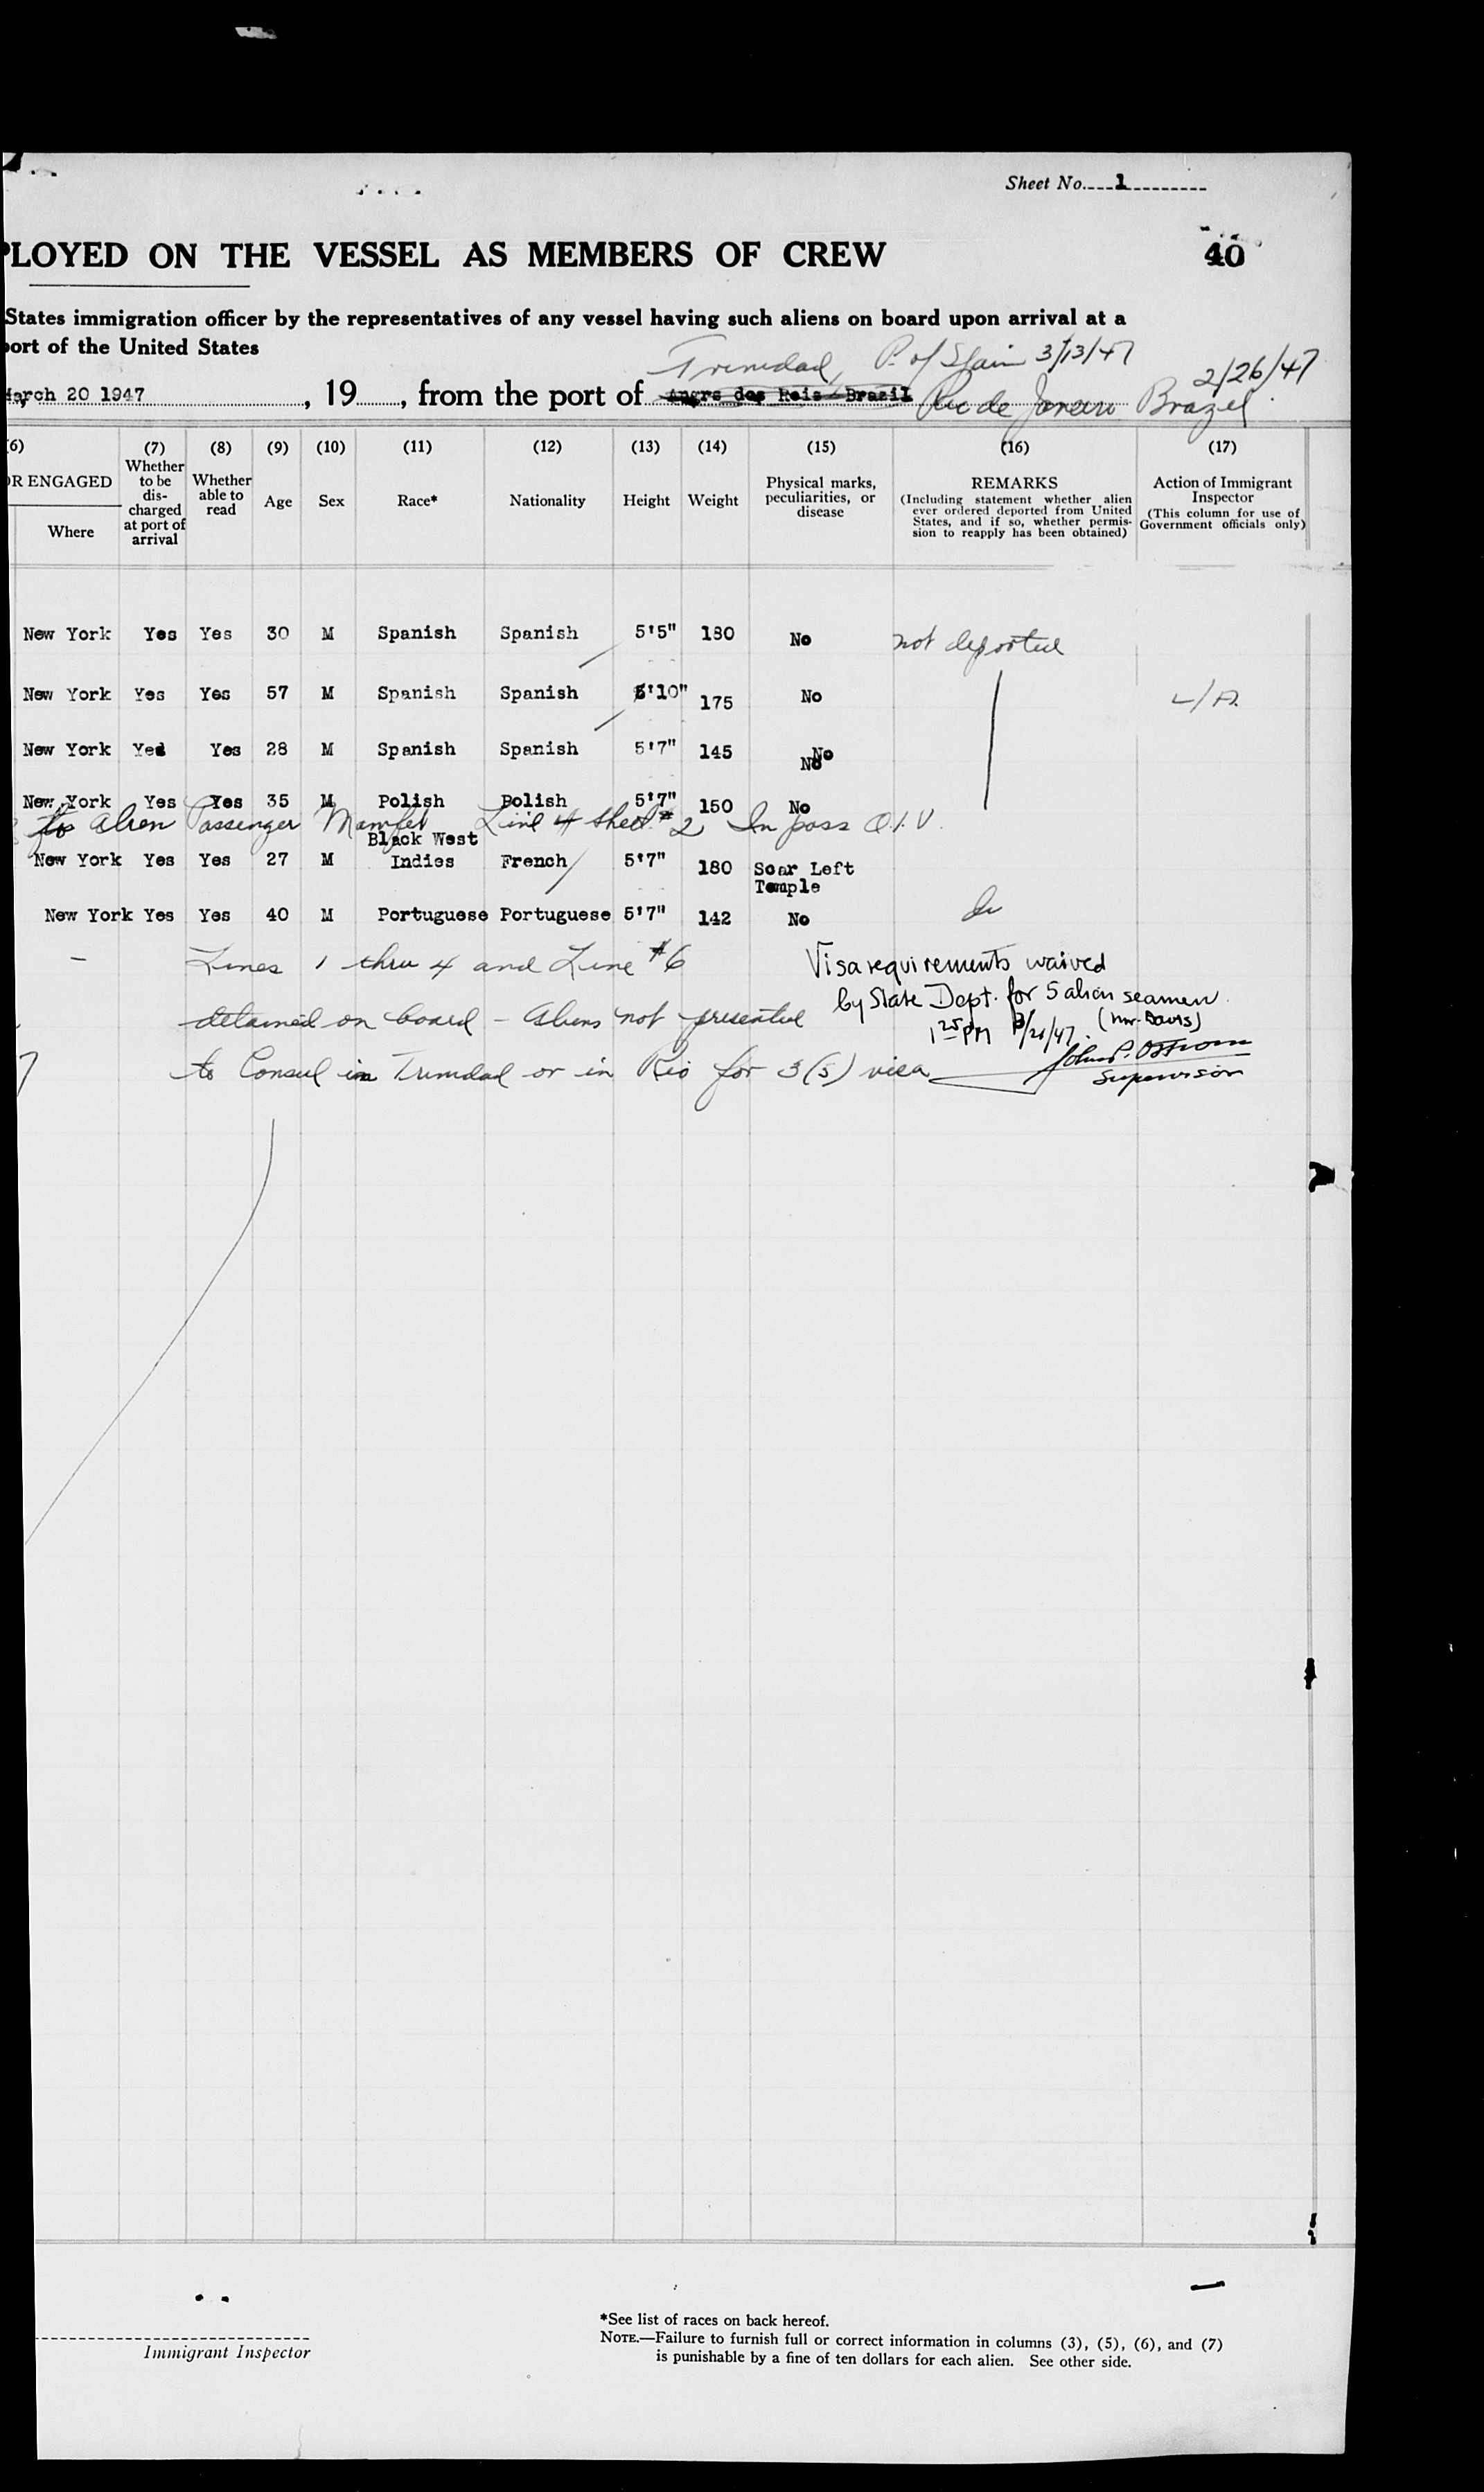 Sheet No. 1
PLOYED ON THE VESSEL AS MEMBERS OF CREW
40
States immigration officer by the representatives of any vessel having such aliens on board upon arrival at a
port of the United States
Trinidad, P. of Spain 3/13/47
2/26/47
March 20 1947, 19, from the port of Angra dos Reis-Brazil Rio de Janeiro Brazil
(6) (7) (8) (9) (10) (11) (12) (13) (14) (15) (16) (17)
OR ENGAGED
Where
Whether
to be
dis-
charged
at port of
arrival
Whether
able to
read
Age
Sex
Race*
Nationality
Height
Weight
Physical marks,
peculiarities, or
disease
REMARKS
(Including statement whether alien
ever ordered deported from United
States, and if so, whether permis-
sion to reapply has been obtained)
Action of Immigrant
Inspector
(This column for use of
Government officials only)
New York Yes Yes 30 M Spanish Spanish 5'5" 180 No not deported
New York Yes Yes 57 M Spanish Spanish 5'10" 175 No
New York Yed Yes 28 M Spanish Spanish 5'7" 145 No No
New York Yes Yes 35 M Polish Polish 5'7" 150 No
to alien Passenger Manifest Line 4 sheet #2 In poss
Black West
New York Yes Yes 27 M Indies French 5'7" 180 Scar Left
Temple
New York Yes Yes 40 M Portuguese Portuguese 5'7" 142 No
Lines 1 thru 4 and Line #6
detained on board - aliens not presented
to Consul in Trinidad or in Rio for 3(5) visa
Visa requirements waived
by State Dept. for 5 alien seamen
1 25 PM 3/21/47. (Mr. Davis)
John P. Ostrom
Supervisor
Immigrant Inspector
*See list of races on back hereof.
NOTE.—Failure to furnish full or correct information in columns (3), (5), (6), and (7)
is punishable by a fine of ten dollars for each alien. See other side.